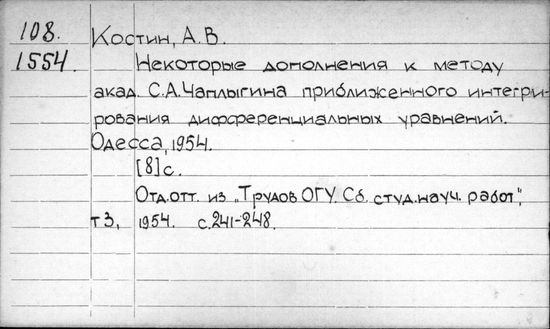 108. Костин, А. В.
1554. Некоторые дополнения к методу
акад. С.А.Чаплыгина приближенного интегри-
рования дифференциальных уравнений.
Одесса, 1954.
[8]с.
Отд.отт. из „Трудов ОГУ. Сб. студ.науч. работ",
т3, 1954. с.241-248.